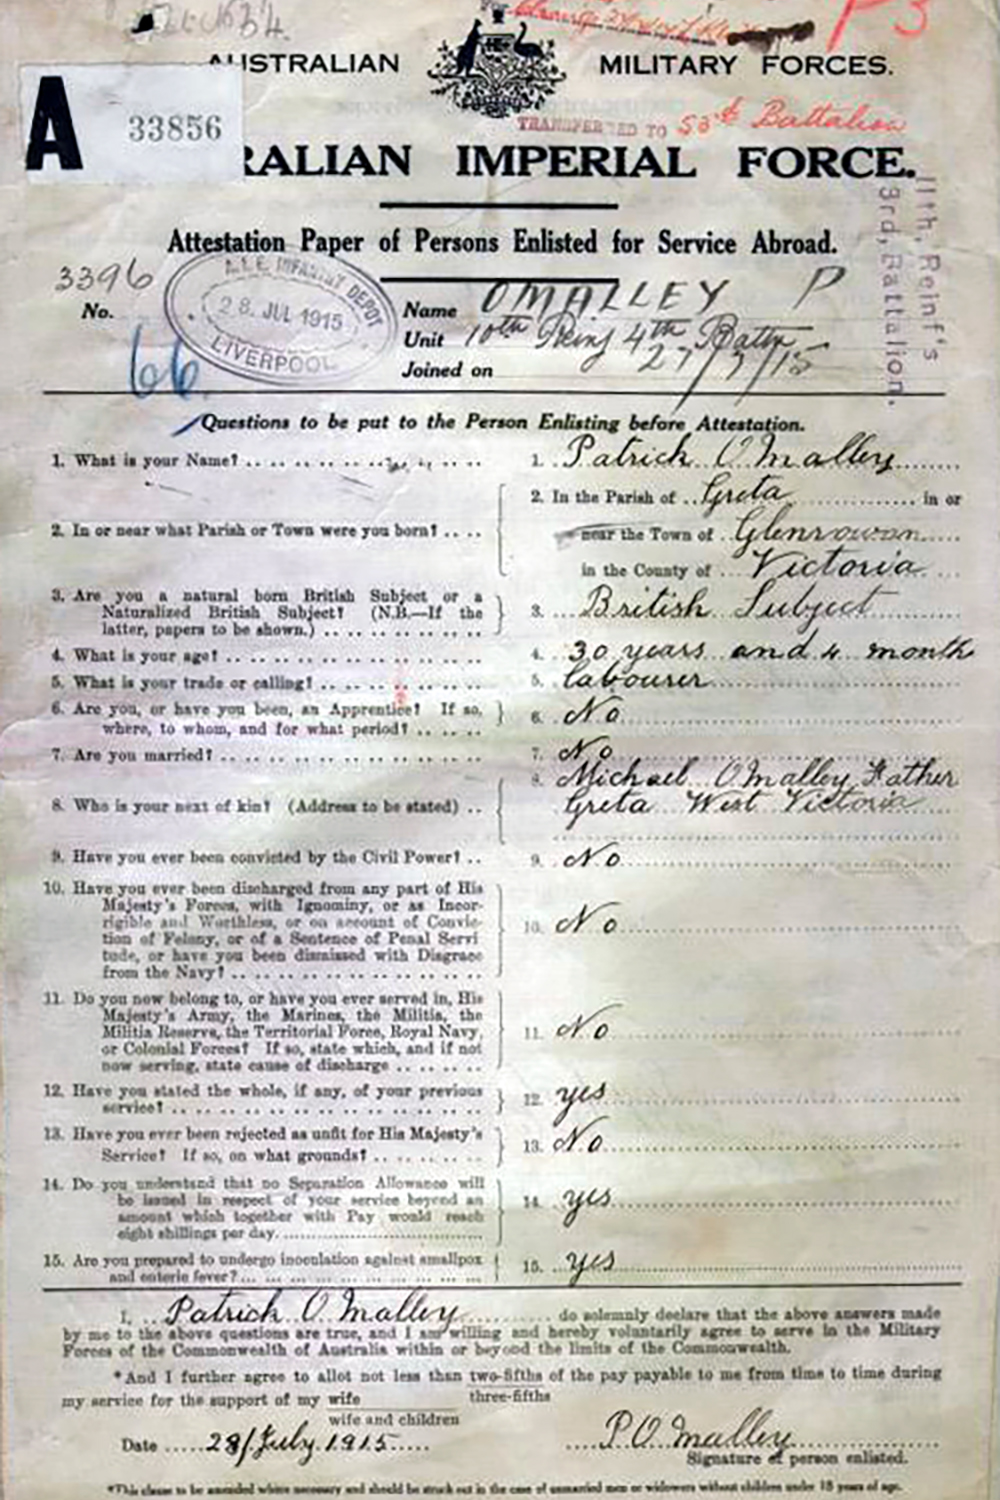 P3
AUSTRALIAN MILITARY FORCES.
A 33856
TRANSFERRED TO 53rd Battalion
RALIAN IMPERIAL FORCE.
11th, Reinf's
3rd, Battalion.
Attestation Paper of Persons Enlisted for Service Abroad.
3396
No.
A.I.F. INFANTRY DEPOT
28 JUL 1915
LIVERPOOL
66
Name OMALLEY P
Unit 10th Reinf 4th Battn
Joined on 27/7/15
Questions to be put to the Person Enlisting before Attestation.
1. What is your Name? 1. Patrick O Malley
2. In or near what Parish or Town were you born? 2. In the Parish of Greta in or
near the Town of Glenrowan
in the County of Victoria
3. Are you a natural born British Subject or a
Naturalized British Subject? (N.B.—If the
latter, papers to be shown.) 3. British Subject
4. What is your age? 4. 30 years and 4 month
5. What is your trade or calling? 5. labourer
6. Are you, or have you been, an Apprentice? If so,
where, to whom, and for what period? 6. No
7. Are you married? 7. No
8. Who is your next of kin? (Address to be stated) 8. Michael O Malley Father
Greta West Victoria
9. Have you ever been convicted by the Civil Power? 9. No
10. Have you ever been discharged from any part of His
Majesty's Forces, with Ignominy, or as Incor-
rigible and Worthless, or on account of Convic-
tion of Felony, or of a Sentence of Penal Servi
tude, or have you been dismissed with Disgrace
from the Navy? 10. No
11. Do you now belong to, or have you ever served in, His
Majesty's Army, the Marines, the Militia, the
Militia Reserve, the Territorial Force, Royal Navy,
or Colonial Forces? If so, state which, and if not
now serving, state cause of discharge 11. No
12. Have you stated the whole, if any, of your previous
service? 12. yes
13. Have you ever been rejected as unfit for His Majesty's
Service? If so, on what grounds? 13. No
14. Do you understand that no Separation Allowance will
be issued in respect of your service beyond an
amount which together with Pay would reach
eight shillings per day. 14. yes
15. Are you prepared to undergo inoculation against smallpox
and enteric fever? 15. yes
I, Patrick O Malley do solemnly declare that the above answers made
by me to the above questions are true, and I am willing and hereby voluntarily agree to serve in the Military
Forces of the Commonwealth of Australia within or beyond the limits of the Commonwealth.
*And I further agree to allot not less than two-fifths of the pay payable to me from time to time during
three-fifths
my service for the support of my wife
wife and children
Date 28/July 1915 P. O Malley
Signature of person enlisted.
*This clause to be amended where necessary and should be struck out in the case of unmarried men or widowers without children under 18 years of age.